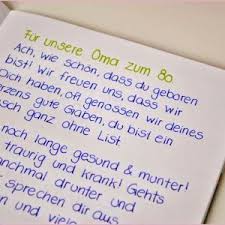 Für unsere Oma zum 80.
Ach, wie schön, dass du geboren
bist! Wir freuen uns, dass wir
Dich haben, oft genossen wir deines
erzens gute Gaben, du bist ein
sch ganz ohne List
noch lange gesund & munter!
traurig und krank! Gehts
nchmal drunter und
sprechen dir aus
n und viele